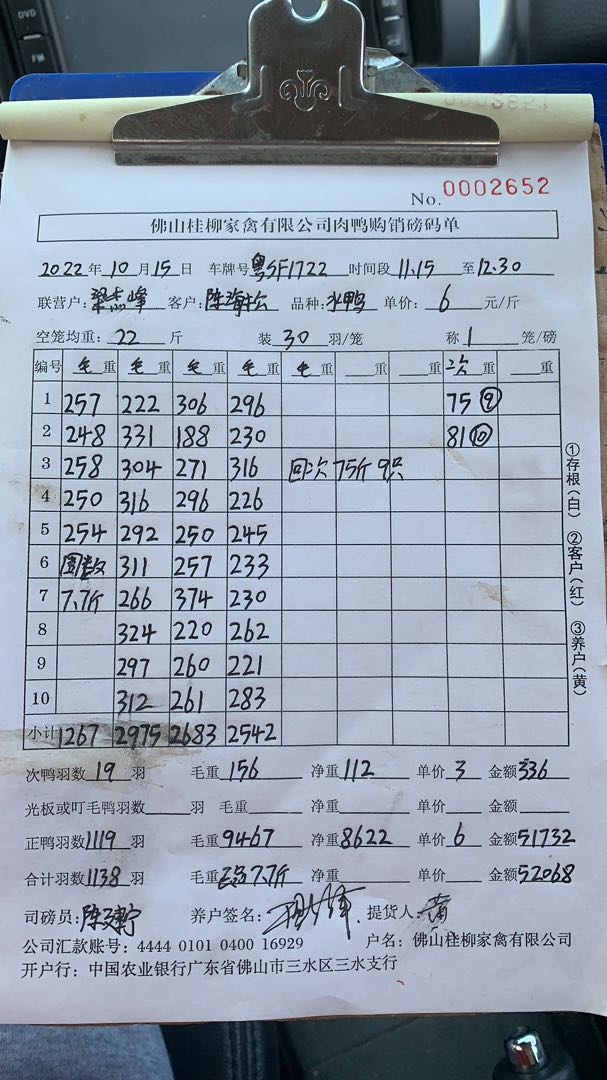 No. 0002652
佛山桂柳家禽有限公司肉鸭购销磅码单
2022年10月15日 车牌号粤SF1722 时间段11.15至12.30
联营户: 客户:陈海 品种:水鸭 单价:6元/斤
空笼均重:22斤 装30羽/笼 称1笼/磅
编号 毛重 毛重 毛重 毛重 毛重 重 重 次重 重
1 257 222 306 296 75⑨
2 248 331 188 230 81⑩
3 258 304 271 316 回次75斤9只
4 250 316 296 226
5 254 292 250 245
6 围数 311 257 233
7 7.7斤 266 374 230
8 324 220 262
9 297 260 221
10 312 261 283
小计 1267 2975 2683 2542
次鸭羽数19羽 毛重156 净重112 单价3 金额336
光板或叮毛鸭羽数 羽 毛重 净重 单价 金额
正鸭羽数1119羽 毛重9467 净重8622 单价6 金额51732
合计羽数1138羽 毛重 7.7斤 净重 单价 金额52068
司磅员:陈 养户签名: 提货人:黄
公司汇款账号: 4444 0101 0400 16929 户名:佛山桂柳家禽有限公司
开户行:中国农业银行广东省佛山市三水区三水支行
①存根(白) ②客户(红) ③养户(黄)